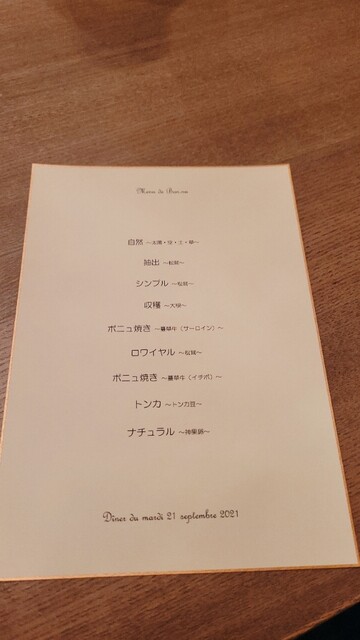 Menu de Bon.nu
自然 ～太陽・母・土・草～
抽出 ～松茸～
シンプル ～松茸～
収穫 ～大根～
ボニュ焼き ～蔓草牛（サーロイン）～
ロワイヤル ～松茸～
ボニュ焼き ～蔓草牛（イチボ）～
トンカ ～トンカ豆～
ナチュラル ～神果卵～
Dîner du mardi 21 septembre 2021